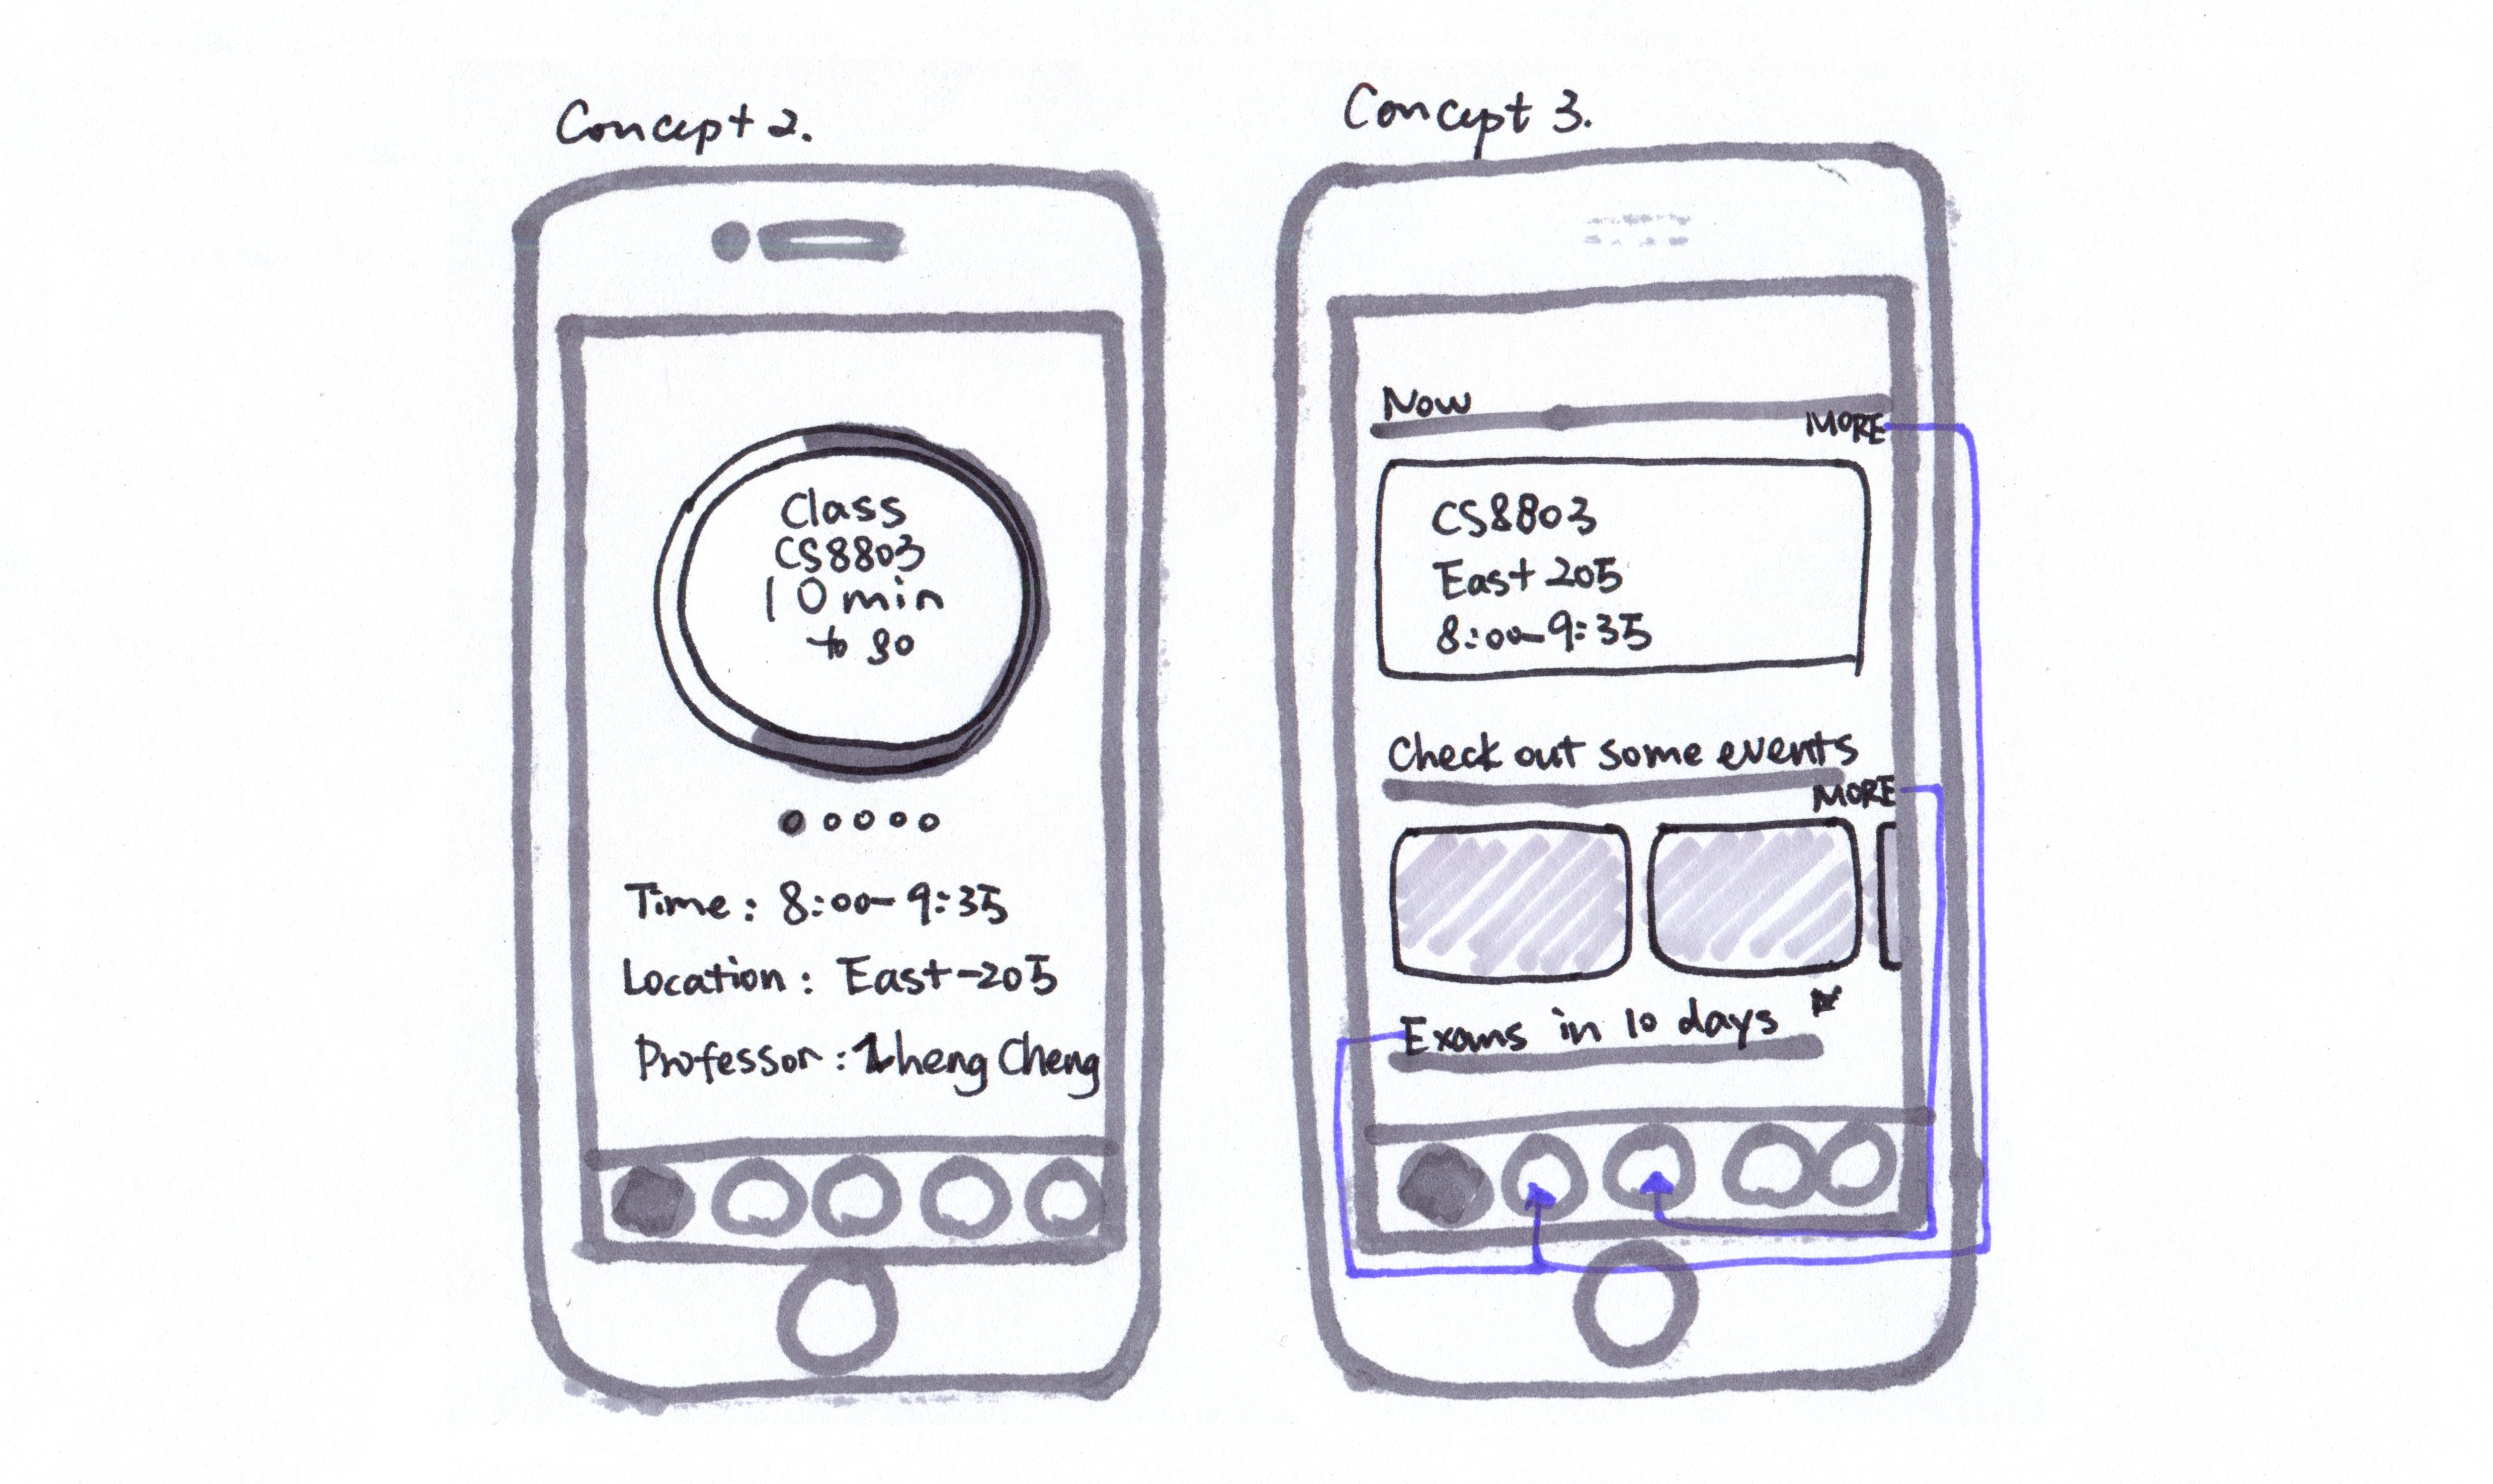 Concept 2.
Class
CS8803
10 min
to go
Time: 8:00-9:35
Location: East-205
Professor: Zheng Cheng
Concept 3.
Now
MORE
CS8803
East 205
8:00-9:35
Check out some events
MORE
Exams in 10 days